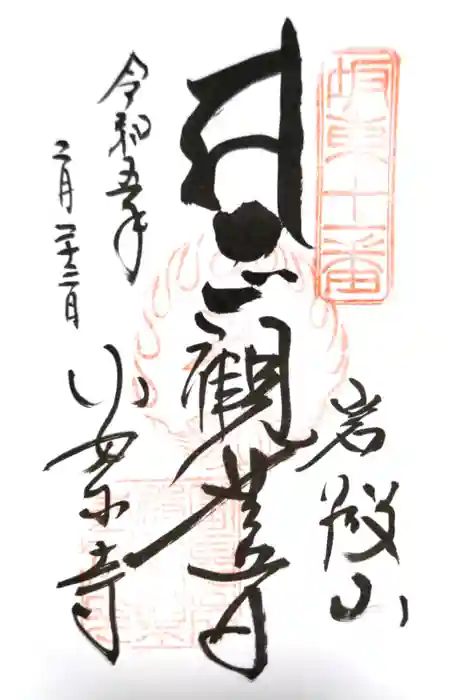 坂東十一番
岩殿山
觀世音
令和五年
二月二十三日
安楽寺